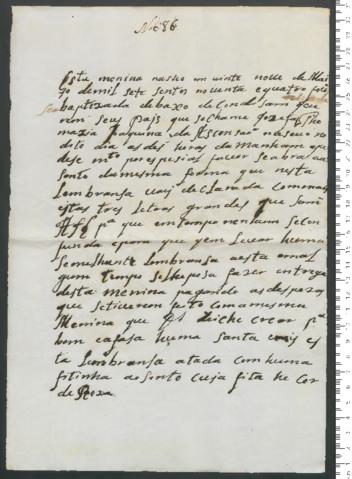 Nº 686
Esta menina nasceo em vinte nove de Mai
ço de mil sete sentos noventa e quatro foi
baptizada debaxo de Condisam que
rem seus Pais que se chame Jozefa Tho
mazia Joaquina da Ascensaõ nasceu no
dito dia as des horas da manham e pu
desse mto por espesial favor se abra o a
sento da mesma forma que nesta
Lembransa vai declarada com mais
estas tres Letras grandes que sam
pª que em tempo nenhum se con
funda e para que quem Levar huma
Semilhante Lembransa a esta em al
gum tempo se lhe posa fazer entrega
desta menina pagando as despezas
que se tiverem feito com a mesma
Menina que Ds deiche crear pª
bem casa huma Santa vai es
ta Lembransa atada com huma
fitinha ao sinto cuja fita he Cor
de Roza